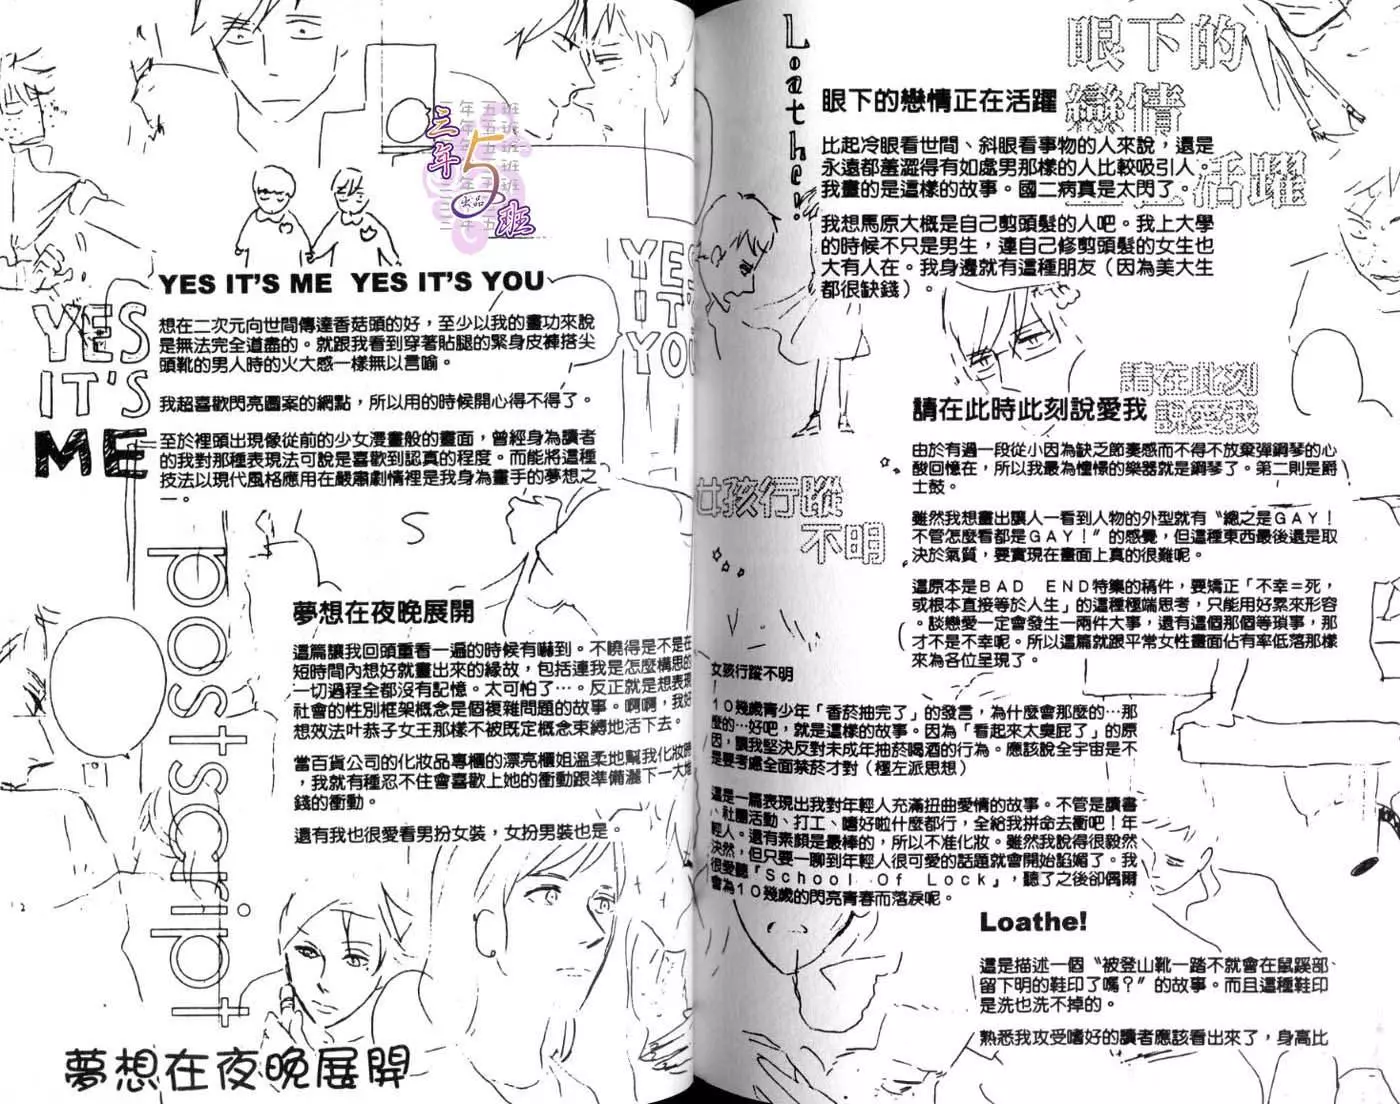 三年五班
出品
YES IT'S ME
YES IT'S ME YES IT'S YOU
想在二次元向世間傳達香菇頭的好，至少以我的畫功來說
是無法完全道盡的。就跟我看到穿著貼腿的緊身皮褲搭尖
頭靴的男人時的火大感一樣無以言喻。
我超喜歡閃亮圖案的網點，所以用的時候開心得不得了。
至於裡頭出現像從前的少女漫畫般的畫面，曾經身為讀者
的我對那種表現法可說是喜歡到認真的程度。而能將這種
技法以現代風格應用在嚴肅劇情裡是我身為畫手的夢想之
一。
postscript
夢想在夜晚展開
這篇讓我回頭重看一遍的時候有嚇到。不曉得是不是在
短時間內想好就畫出來的緣故，包括連我是怎麼構思的
一切過程全都沒有記憶。太可怕了…。反正就是想表現
社會的性別框架概念是個複雜問題的故事。啊啊，我好
想效法叶恭子女王那樣不被既定概念束縛地活下去。
當百貨公司的化妝品專櫃的漂亮櫃姐溫柔地幫我化妝時
，我就有種忍不住會喜歡上她的衝動跟準備灑下一大堆
錢的衝動。
還有我也很愛看男扮女裝，女扮男裝也是。
夢想在夜晚展開
YES IT'S YOU
Loathe!
眼下的
戀情
活躍
眼下的戀情正在活躍
比起冷眼看世間、斜眼看事物的人來說，還是
永遠都羞澀得有如處男那樣的人比較吸引人，
我畫的是這樣的故事。國二病真是太閃了。
我想馬原大概是自己剪頭髮的人吧。我上大學
的時候不只是男生，連自己修剪頭髮的女生也
大有人在。我身邊就有這種朋友（因為美大生
都很缺錢）。
請在此刻
說愛我
請在此時此刻說愛我
由於有過一段從小因為缺乏節奏感而不得不放棄彈鋼琴的心
酸回憶在，所以我最為憧憬的樂器就是鋼琴了。第二則是爵
士鼓。
雖然我想畫出讓人一看到人物的外型就有〝總之是GAY！
不管怎麼看都是GAY！〞的感覺，但這種東西最後還是取
決於氣質，要實現在畫面上真的很難呢。
這原本是BAD END特集的稿件，要矯正「不幸＝死，
或根本直接等於人生」的這種極端思考，只能用好累來形容
。談戀愛一定會發生一兩件大事，還有這個那個等瑣事，那
才不是不幸呢。所以這篇就跟平常女性畫面佔有率低落那樣
來為各位呈現了。
女孩行蹤
不明
女孩行蹤不明
10幾歲青少年「香菸抽完了」的發言，為什麼會那麼的…那
麼的…好吧，就是這樣的故事。因為「看起來太臭屁了」的原
因，讓我堅決反對未成年抽菸喝酒的行為。應該說全宇宙是不
是要考慮全面禁菸才對（極左派思想）
這是一篇表現出我對年輕人充滿扭曲愛情的故事。不管是讀書
、社團活動、打工、嗜好啦什麼都行，全給我拼命去衝吧！年
輕人。還有素顏是最棒的，所以不准化妝。雖然我說得很毅然
決然，但只要一聊到年輕人很可愛的話題就會開始諂媚了。我
很愛聽『School Of Lock』，聽了之後卻偶爾
會為10幾歲的閃亮青春而落淚呢。
Loathe!
這是描述一個〝被登山靴一踏不就會在鼠蹊部
留下明的鞋印了嗎？〞的故事。而且這種鞋印
是洗也洗不掉的。
熟悉我攻受嗜好的讀者應該看出來了，身高比